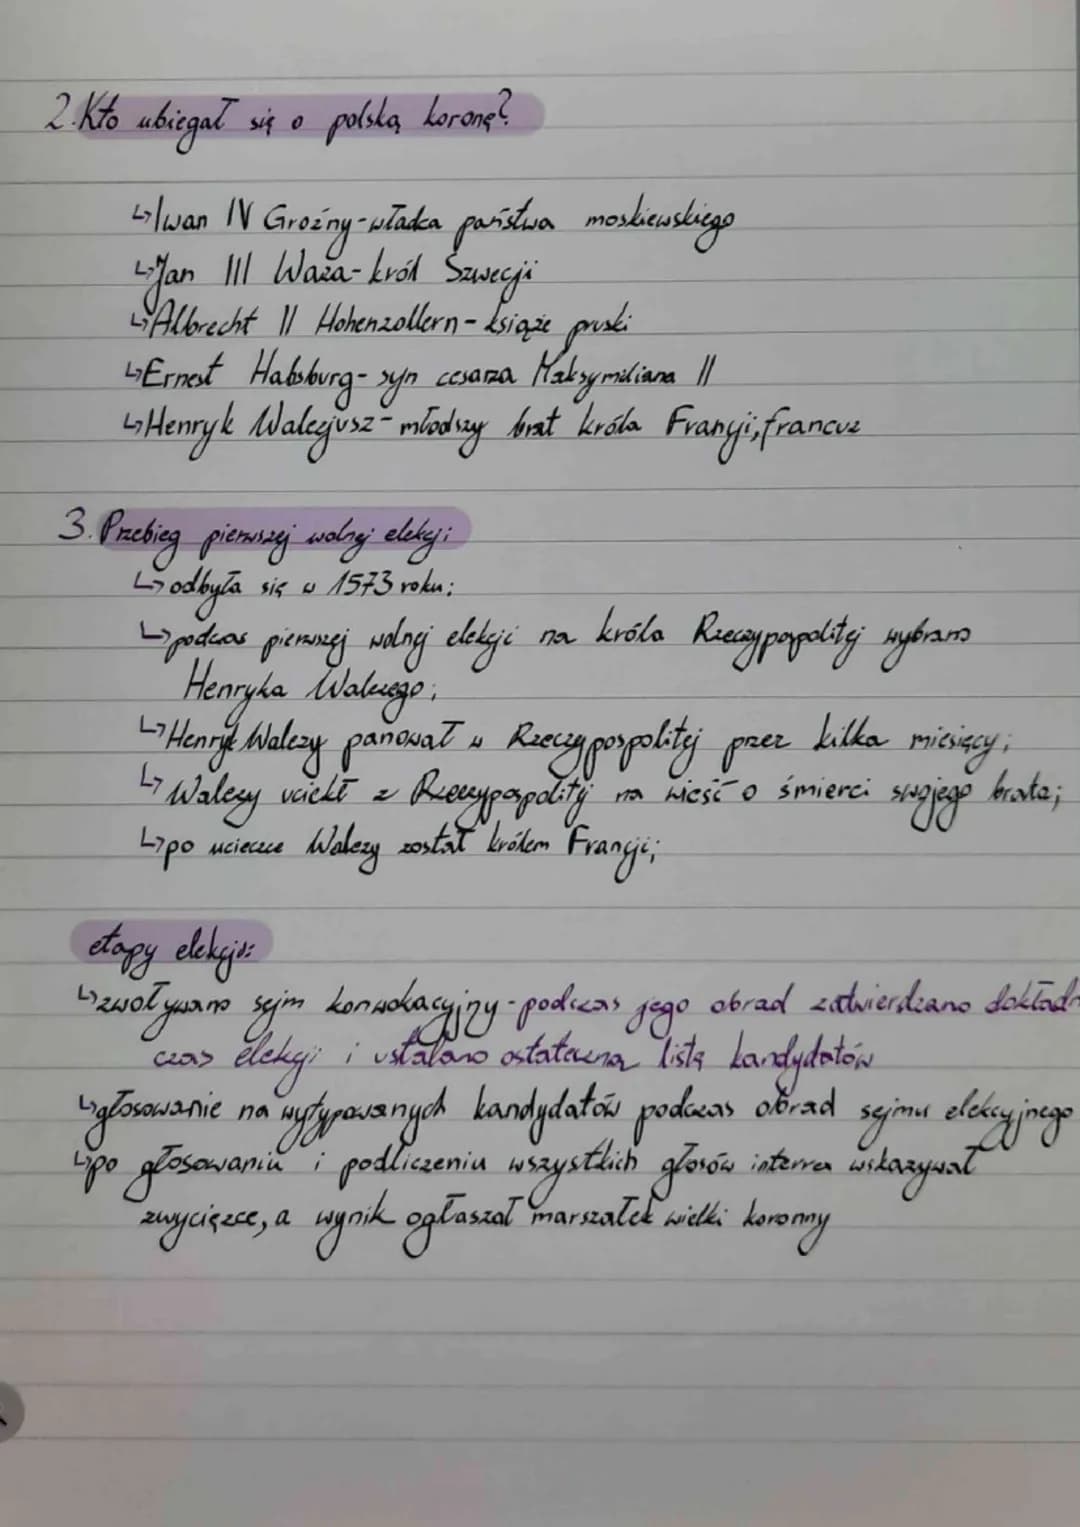 2. Kto ubiegał się o polską koronę?
↳ Iwan IV Groźny - władca państwa moskiewskiego
↳ Jan III Waza - król Szwecji
↳ Albrecht II Hohenzollern - książe pruski
↳ Ernest Habsburg - syn cesarza Maksymiliana II
↳ Henryk Walezjusz - młodszy brat króla Francji, francuz
3. Przebieg pierwszej wolnej elekcji
↳ odbyła się w 1573 roku;
↳ podczas pierwszej wolnej elekcji na króla Rzeczypospolitej wybrano
Henryka Walezego;
↳ Henryk Walezy panował w Rzeczypospolitej przez kilka miesięcy;
↳ Walezy uciekł z Rzeczypospolitej na wieść o śmierci swojego brata;
↳ po ucieczce Walezy został królem Francji;
etapy elekcji:
↳ zwoływano sejm konwokacyjny - podczas jego obrad zatwierdzano dokładn
czas elekcji i ustalano ostateczną listę kandydatów
↳ głosowanie na wytypowanych kandydatów podczas obrad sejmu elekcyjnego
↳ po głosowaniu i podliczeniu wszystkich głosów interrex wskazywał
zwycięzce, a wynik ogłaszał marszałek wielki koronny